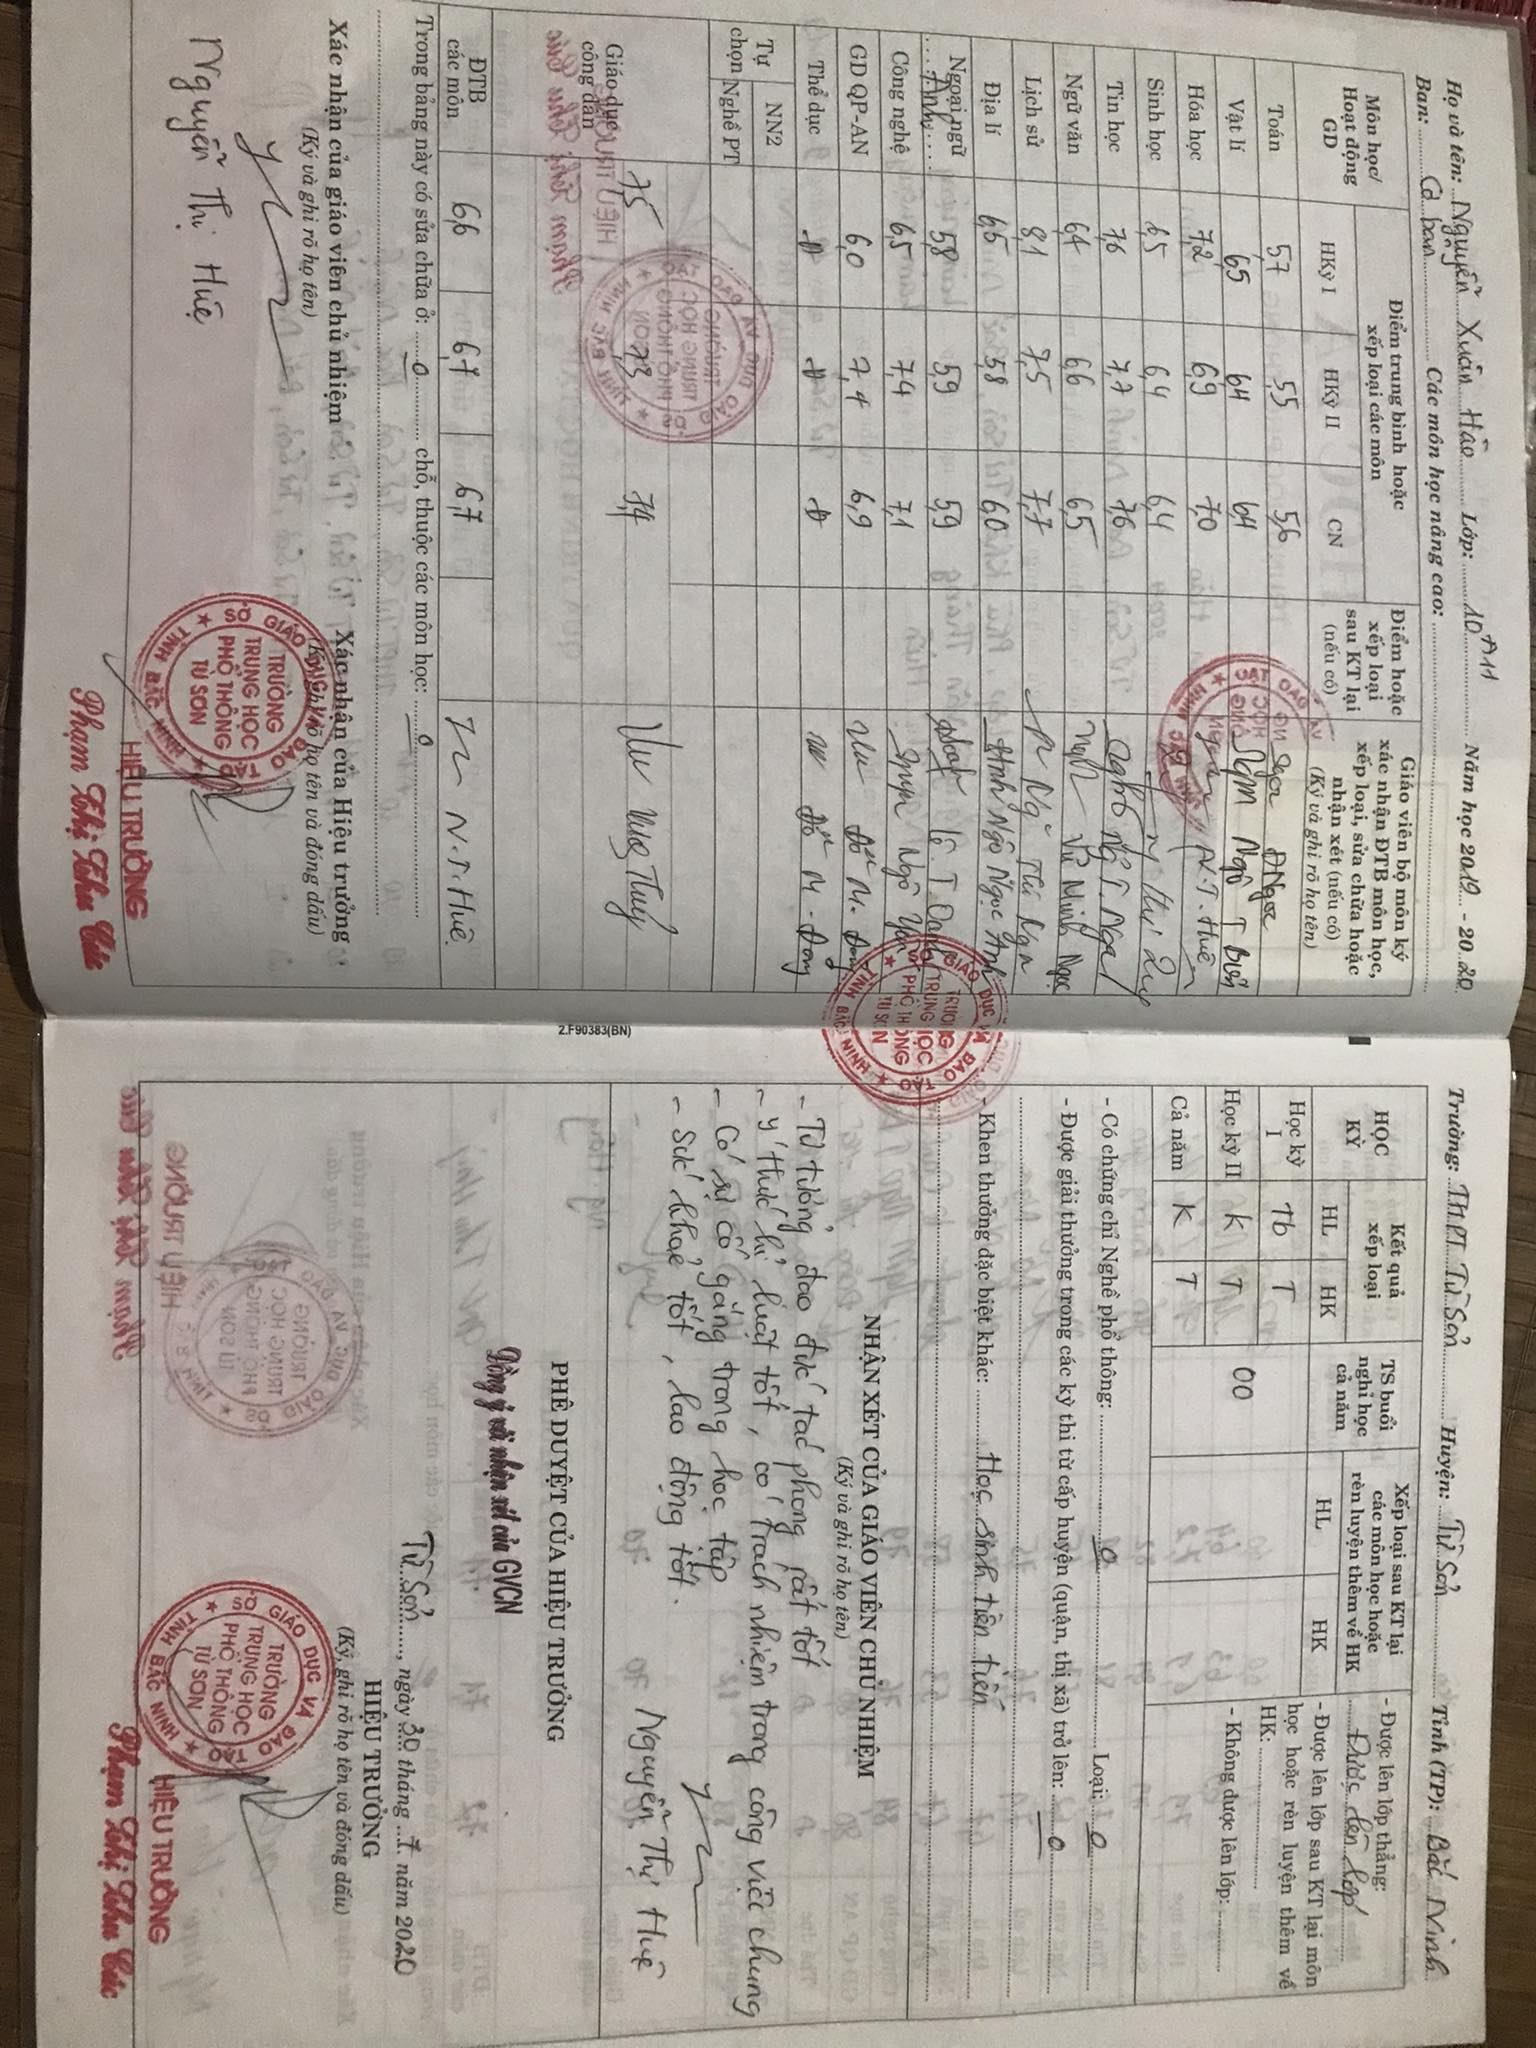 Họ và tên: Nguyễn Xuân Hào Lớp: 10A11 Năm học 2019 - 2020
Ban: Cơ bản Các môn học nâng cao:
Môn học/ Hoạt động GD
Điểm trung bình hoặc xếp loại các môn
HKỳ I HKỳ II CN
Điểm hoặc xếp loại sau KT lại (nếu có)
Giáo viên bộ môn ký xác nhận ĐTB môn học, xếp loại, sửa chữa hoặc nhận xét (nếu có) (Ký và ghi rõ họ tên)
Toán 5,7 5,5 5,6 ĐNgọc
Vật lí 6,5 6,4 6,4 Ngô T
Hóa học 7,2 6,9 7,0 N.T. Huê
Sinh học 6,5 6,4 6,4
Tin học 7,6 7,7 7,6 Ng T. Nga
Ngữ văn 6,4 6,6 6,5 Vũ Minh Ngọc
Lịch sử 8,1 7,5 7,7 Ng Nga
Địa lí 6,5 5,8 6,0 Ngô Ngọc Anh
Ngoại ngữ Anh 5,8 5,9 5,9 Lê T Oanh
Công nghệ 6,5 7,4 7,1 Ngô
GD QP-AN 6,0 7,4 6,9
Thể dục Đ Đ Đ
Tự chọn
NN2
Nghề PT
Giáo dục công dân 7,5 7,3 7,4
ĐTB các môn 6,6 6,7 6,7 N.T.Huê
Trong bảng này có sửa chữa ở: 0 chỗ, thuộc các môn học: 0
Xác nhận của giáo viên chủ nhiệm
(Ký và ghi rõ họ tên)
Nguyễn Thị Huê
Xác nhận của Hiệu trưởng
(Ký, ghi rõ họ tên và đóng dấu)
SỞ GIÁO DỤC VÀ ĐÀO TẠO
TRƯỜNG
TRUNG HỌC
PHỔ THÔNG
TỪ SƠN
TỈNH BẮC NINH
HIỆU TRƯỞNG
Phạm Thị Thu Cúc
2.F90383(BN)
Trường: THPT Từ Sơn Huyện: Từ Sơn Tỉnh (TP): Bắc Ninh
HỌC KỲ
Kết quả xếp loại
HL HK
TS buổi nghỉ học cả năm
Xếp loại sau KT lại các môn học hoặc rèn luyện thêm về HK
HL HK
Học kỳ I Tb T
Học kỳ II K T
Cả năm K T
00
- Được lên lớp thẳng:
Được lên lớp
- Được lên lớp sau KT lại môn học hoặc rèn luyện thêm về HK:
- Không được lên lớp:
- Có chứng chỉ Nghề phổ thông: 0 Loại: 0
- Được giải thưởng trong các kỳ thi từ cấp huyện (quận, thị xã) trở lên: 0
- Khen thưởng đặc biệt khác: Học sinh tiên tiến
SỞ GIÁO DỤC VÀ ĐÀO TẠO
TRƯỜNG
TRUNG HỌC
PHỔ THÔNG
TỪ SƠN
TỈNH BẮC NINH
NHẬN XÉT CỦA GIÁO VIÊN CHỦ NHIỆM
(Ký và ghi rõ họ tên)
- Tư tưởng đạo đức tác phong rất tốt
- Ý thức kỉ luật tốt, có trách nhiệm trong công việc chung
- Có sự cố gắng trong học tập
- Sức khoẻ tốt, lao động tốt.
Nguyễn Thị Huê
PHÊ DUYỆT CỦA HIỆU TRƯỞNG
Đồng ý với nhận xét của GVCN
Từ Sơn, ngày 30 tháng 7 năm 2020
HIỆU TRƯỞNG
(Ký, ghi rõ họ tên và đóng dấu)
SỞ GIÁO DỤC VÀ ĐÀO TẠO
TRƯỜNG
TRUNG HỌC
PHỔ THÔNG
TỪ SƠN
TỈNH BẮC NINH
HIỆU TRƯỞNG
Phạm Thị Thu Cúc